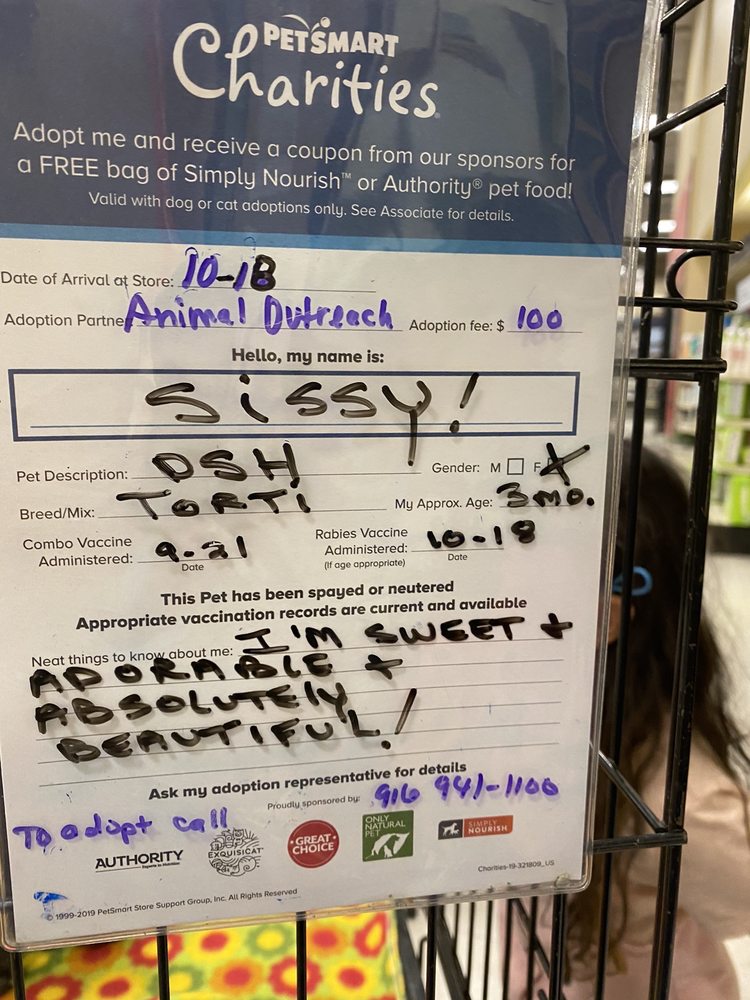 PETSMART
Charities
Adopt me and receive a coupon from our sponsors for
a FREE bag of Simply Nourish™ or Authority® pet food!
Valid with dog or cat adoptions only. See Associate for details.
Date of Arrival at Store: 10-18
Adoption Partne Animal Outreach Adoption fee: $ 100
Hello, my name is:
SiSSY!
Pet Description: DSH Gender: M F X
Breed/Mix: TORTi My Approx. Age: 3 mo.
Combo Vaccine Administered: 9-21 Date
Rabies Vaccine Administered: 10-18 Date
(If age appropriate)
This Pet has been spayed or neutered
Appropriate vaccination records are current and available
Neat things to know about me: I'M SWEET +
ADORABLE +
ABSOLUTELY
BEAUTIFUL!
Ask my adoption representative for details
Proudly sponsored by: 916 941-1100
To adopt call
AUTHORITY
EXQUISICAT
GREAT CHOICE
ONLY NATURAL PET
SIMPLY NOURISH
Charities-19-321809_US
© 1999-2019 PetSmart Store Support Group, Inc. All Rights Reserved